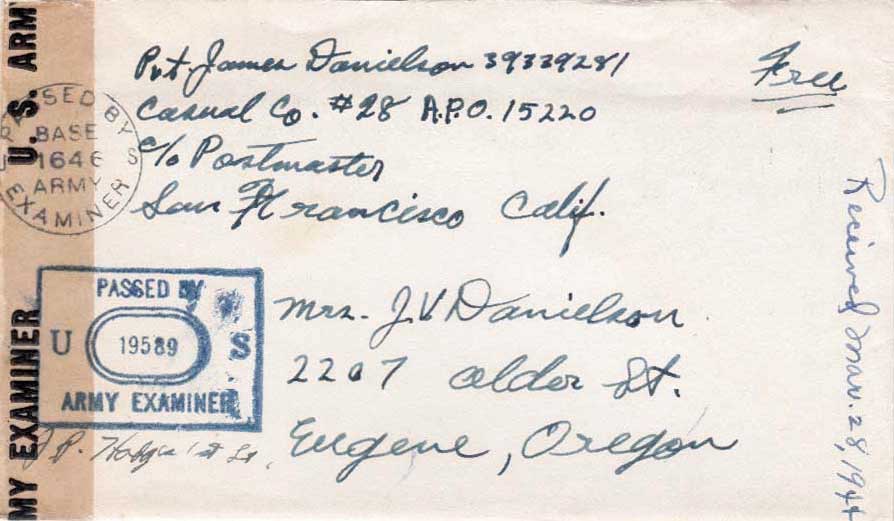 Pvt. James Danielson 39339281
Casual Co. #28 A.P.O. 15220
c/o Postmaster
San Francisco Calif.
Free
Mrs. J V Danielson
2207 Alder St.
Eugene, Oregon
Received Mar. 28, 1944
U. S. ARM
MY EXAMINER
PASSED BY
BASE
1646
ARMY
EXAMINER
U S
PASSED BY
U 19589 S
ARMY EXAMINER
J. P. 1st Lt.